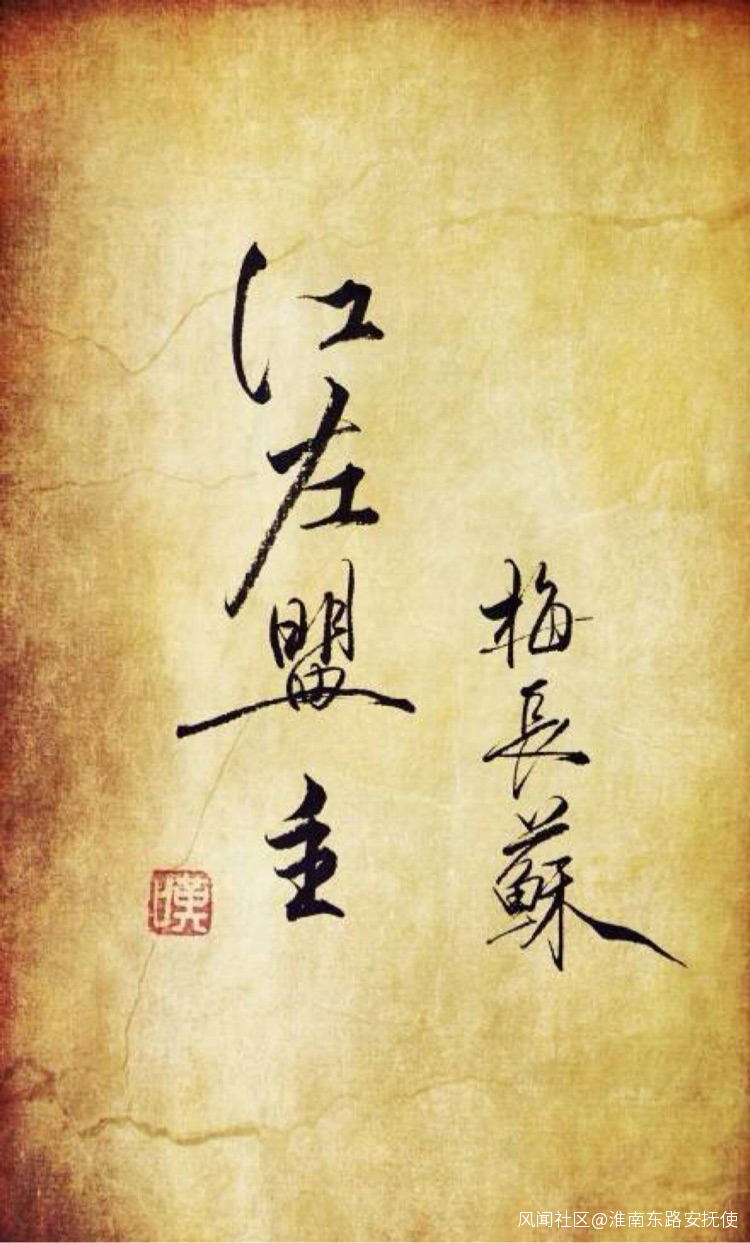 梅長蘇
江左盟主
嘆
风闻社区@淮南东路安抚使